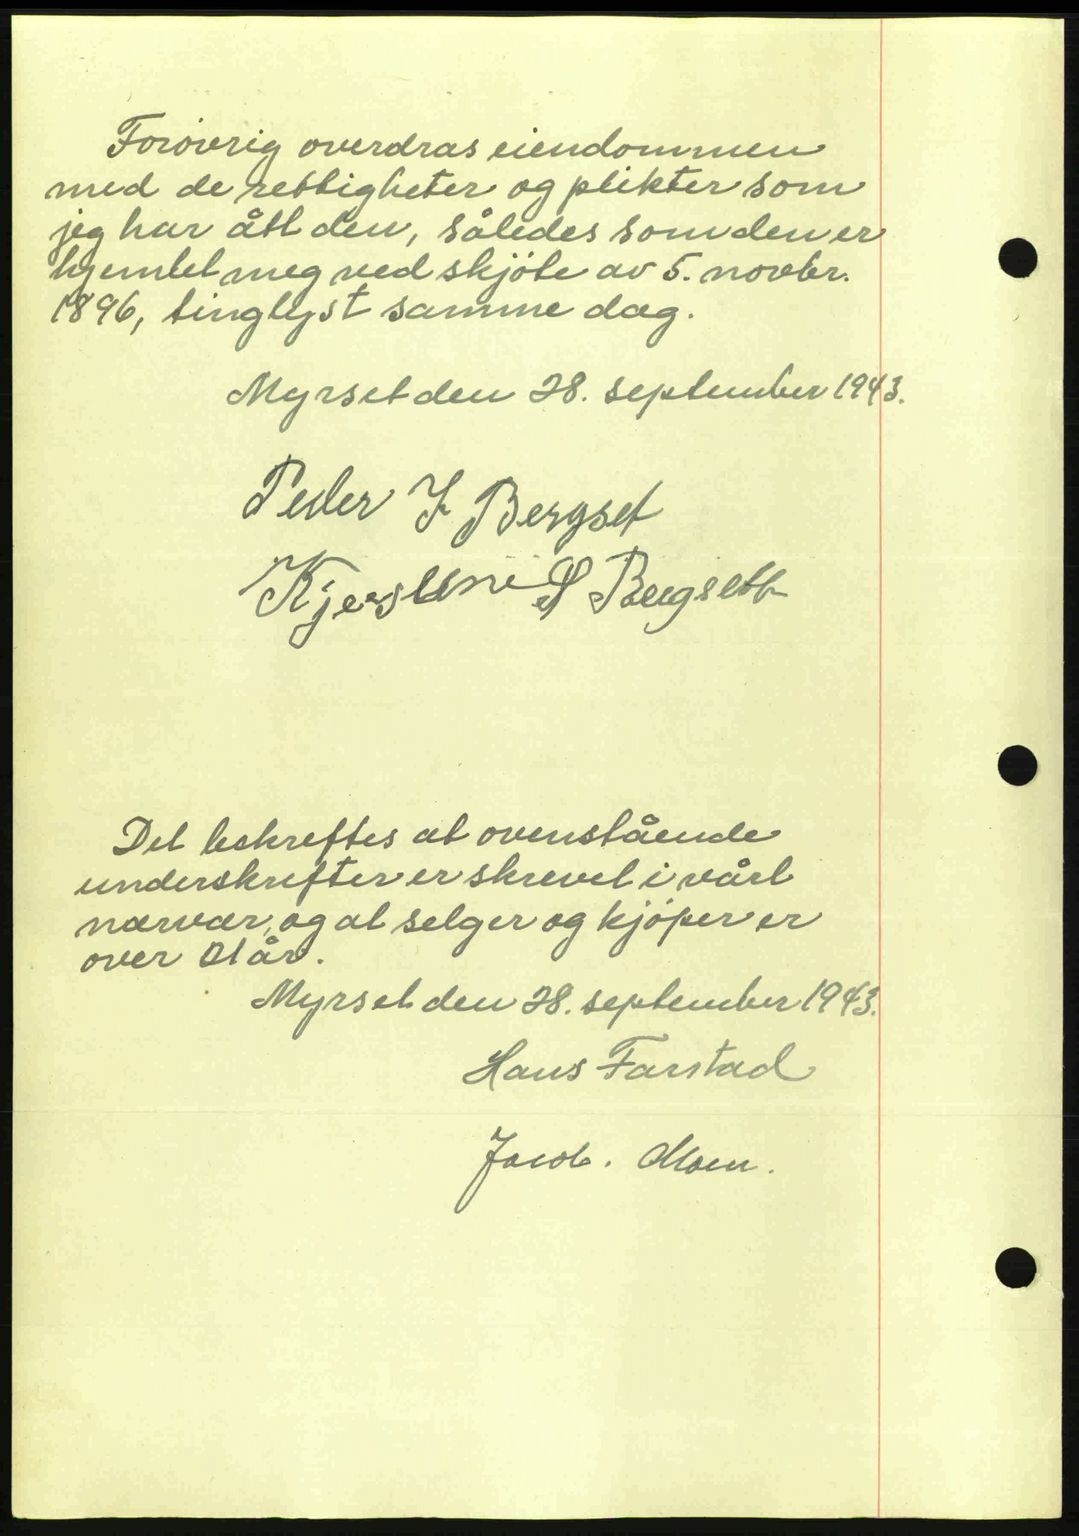 Forøvrig overdras eiendommen
med de rettigheter og plikter som
jeg har ått den, således som den er
hjemlet meg ved skjøte av 5. novbr.
1896, tinglyst samme dag.
Myrset den 28. september 1943.
Peder J Bergset
Kjerstine S Bergseth
Det bekreftes at ovenstående
underskrifter er skrevet i vårt
nærvær, og at selger og kjøper er
over 21 år.
Myrset den 28. september 1943.
Hans Farstad
Jacob. Moen.